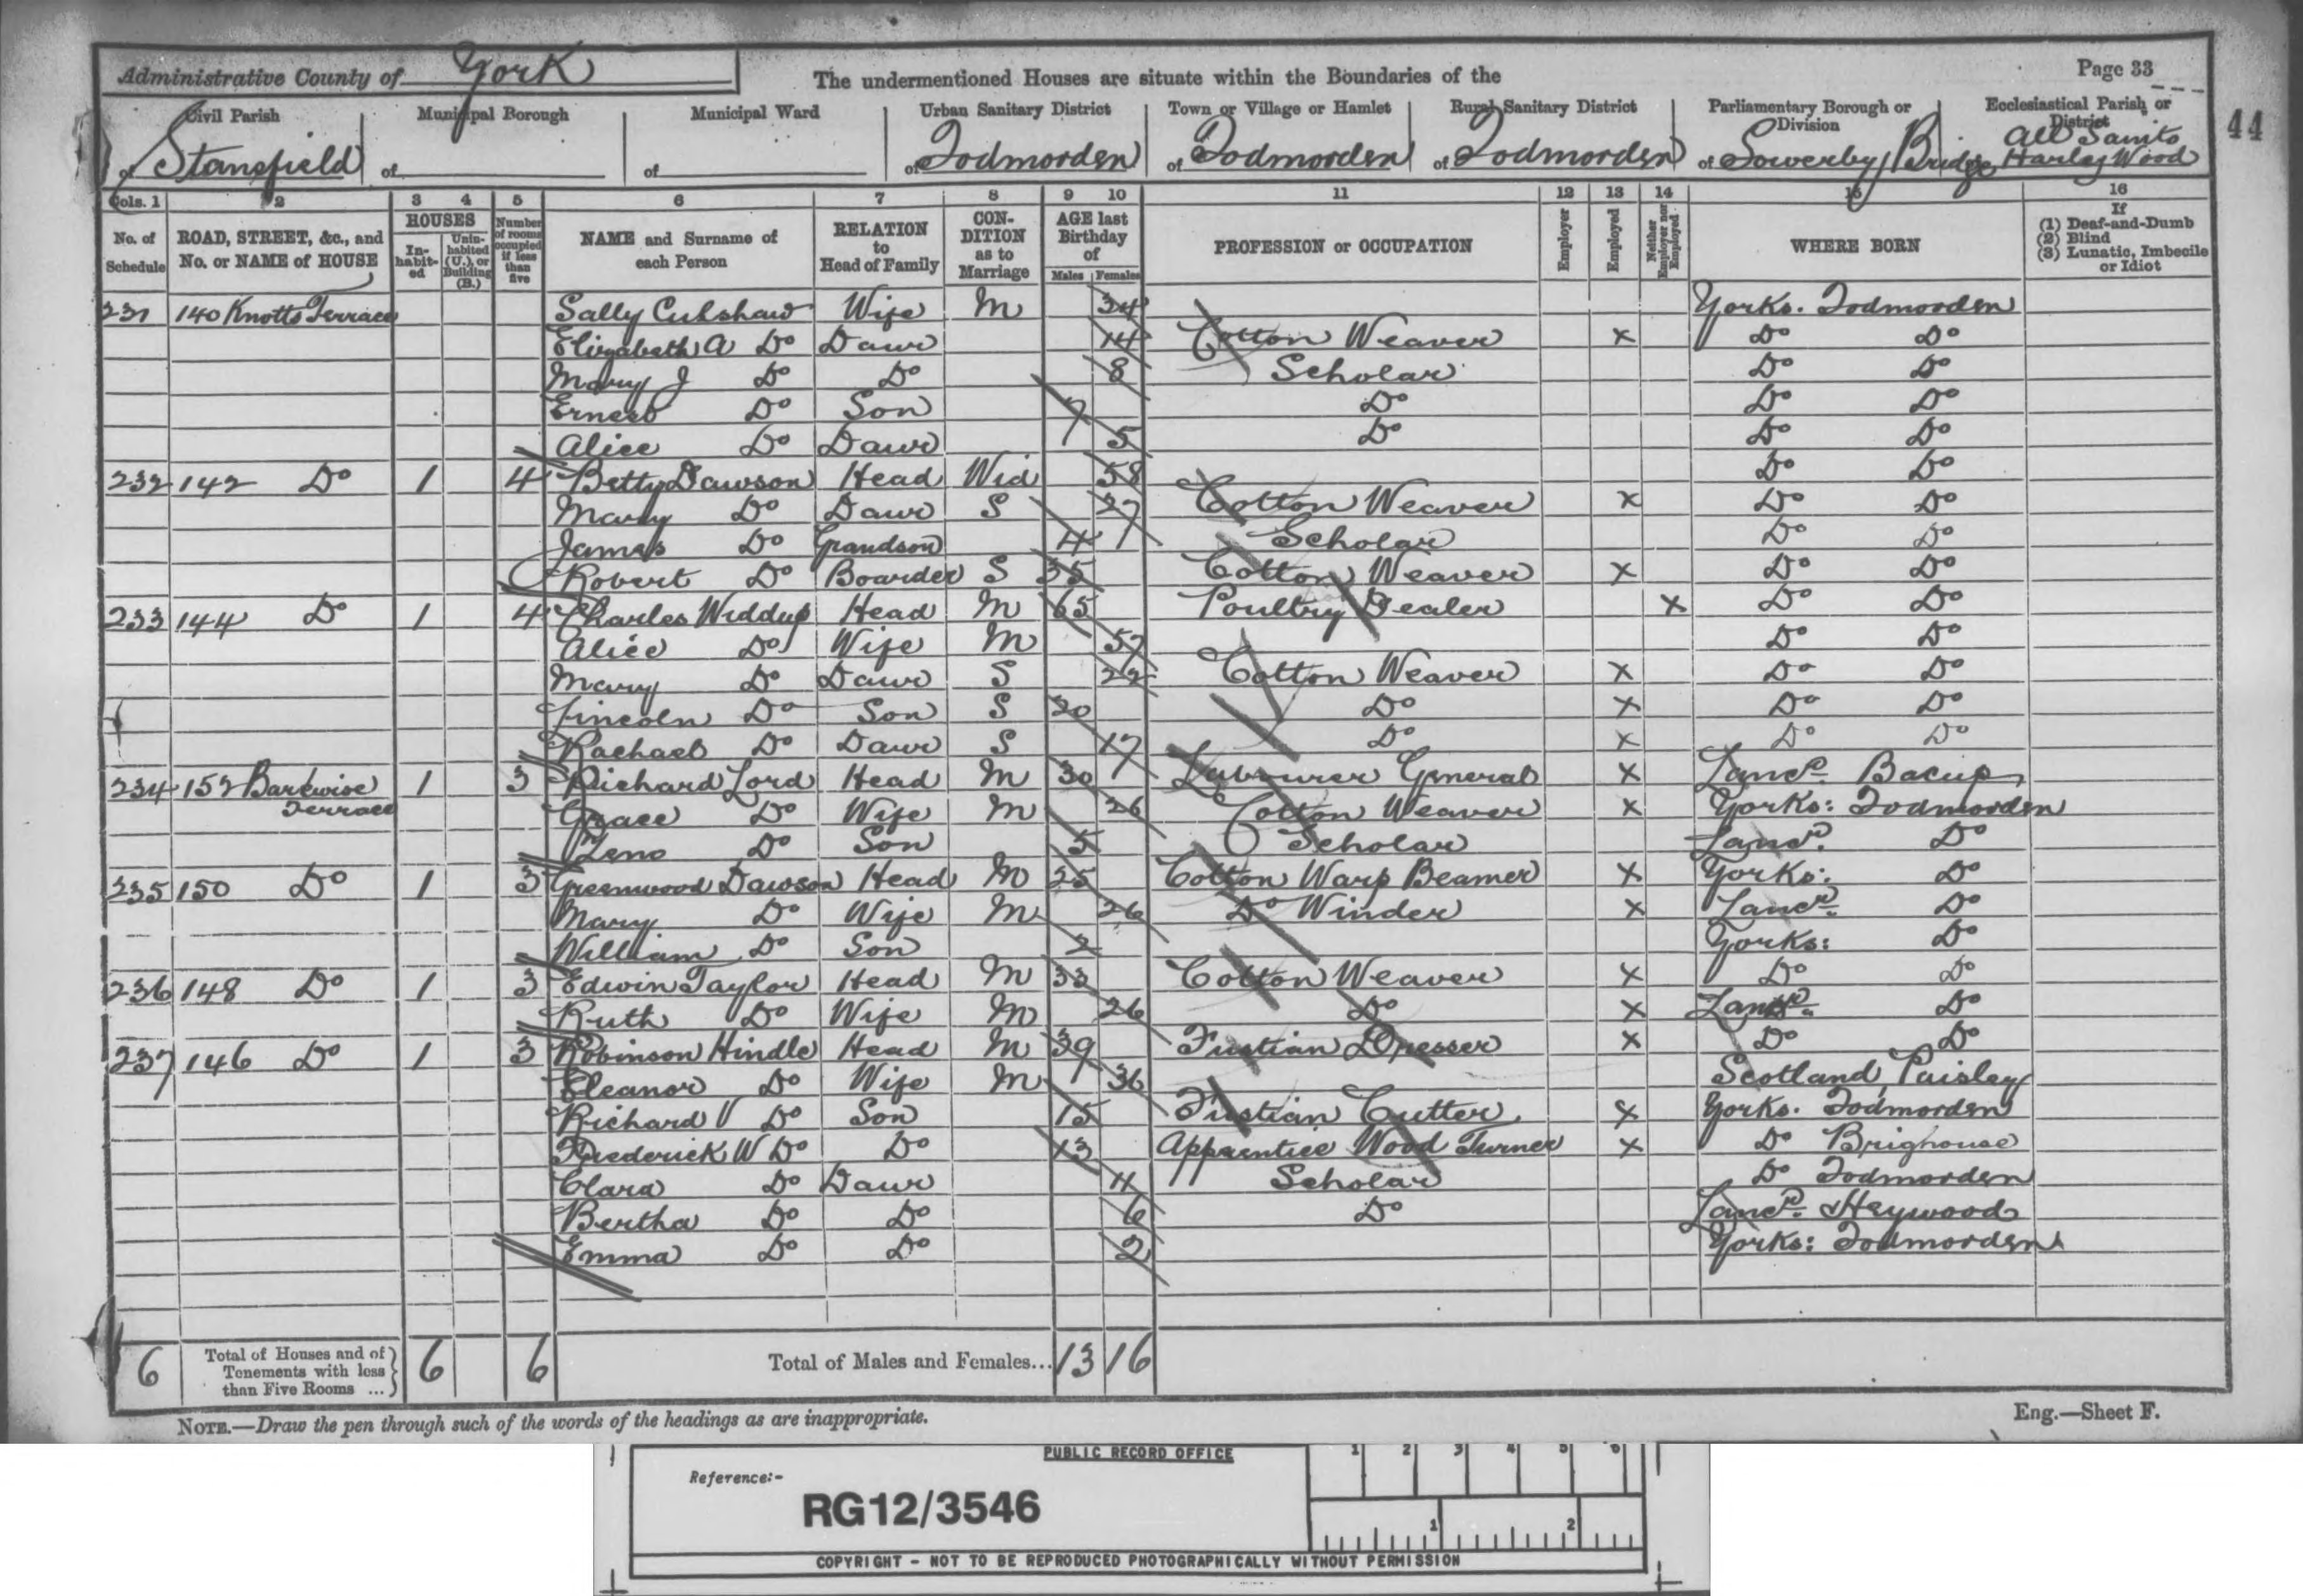 Administrative County of York
The undermentioned Houses are situate within the Boundaries of the
Page 33
Civil Parish Municipal Borough Municipal Ward Urban Sanitary District Town or Village or Hamlet Rural Sanitary District Parliamentary Borough or Division Ecclesiastical Parish or District
of Stansfield of of of Todmorden of Todmorden of Todmorden of Sowerby Bridge All Saints Harley Wood
44
Cols. 1 2 3 4 5 6 7 8 9 10 11 12 13 14 15 16
No. of Schedule ROAD, STREET, &c., and No. or NAME of HOUSE HOUSES Inhabited Uninhabited (U.), or Building (B.) Number of rooms occupied if less than five NAME and Surname of each Person RELATION to Head of Family CONDITION as to Marriage AGE last Birthday of Males Females PROFESSION or OCCUPATION Employer Employed Neither Employer nor Employed WHERE BORN If (1) Deaf-and-Dumb (2) Blind (3) Lunatic, Imbecile or Idiot
231 140 Knotts Terrace Sally Culshaw Wife M 34 Yorks. Todmorden
Elizabeth A Do Dawr 14 Cotton Weaver x Do Do
Mary J Do Do 8 Scholar Do Do
Ernest Do Son 7 Do Do Do
Alice Do Dawr 5 Do Do Do
232 142 Do 1 4 Betty Dawson Head Wid 58 Do Do
Mary Do Dawr S 27 Cotton Weaver x Do Do
James Do Grandson 4 Scholar Do Do
Robert Do Boarder S 35 Cotton Weaver x Do Do
233 144 Do 1 4 Charles Widdup Head M 65 Poultry Dealer x Do Do
Alice Do Wife M 57 Do Do
Mary Do Dawr S 22 Cotton Weaver x Do Do
Lincoln Do Son S 20 Do x Do Do
Rachael Do Dawr S 17 Do x Do Do
234 152 Barkwise Terrace 1 3 Richard Lord Head M 30 Labourer General x Lancr. Bacup
Grace Do Wife M 26 Cotton Weaver x Yorks: Todmorden
Zeno Do Son 5 Scholar Lancr. Do
235 150 Do 1 3 Greenwood Dawson Head M 25 Cotton Warp Beamer x Yorks: Do
Mary Do Wife M 26 Do Winder x Lancr. Do
William Do Son 2 Yorks: Do
236 148 Do 1 3 Edwin Taylor Head M 33 Cotton Weaver x Do Do
Ruth Do Wife M 26 Do x Lancr. Do
237 146 Do 1 3 Robinson Hindle Head M 39 Fustian Dresser x Do Do
Eleanor Do Wife M 36 Scotland, Paisley
Richard V Do Son 15 Fustian Cutter x Yorks. Todmorden
Frederick W Do Do 13 Apprentice Wood Turner x Do Brighouse
Clara Do Dawr 11 Scholar Do Todmorden
Bertha Do Do 6 Do Lancr. Heywood
Emma Do Do 2 Yorks: Todmorden
6 Total of Houses and of Tenements with less than Five Rooms ... 6 6 Total of Males and Females... 13 16
NOTE.—Draw the pen through such of the words of the headings as are inappropriate.
Eng.—Sheet F.
PUBLIC RECORD OFFICE
1 2 3 4 5 6
Reference:-
RG12/3546
1 2
COPYRIGHT - NOT TO BE REPRODUCED PHOTOGRAPHICALLY WITHOUT PERMISSION